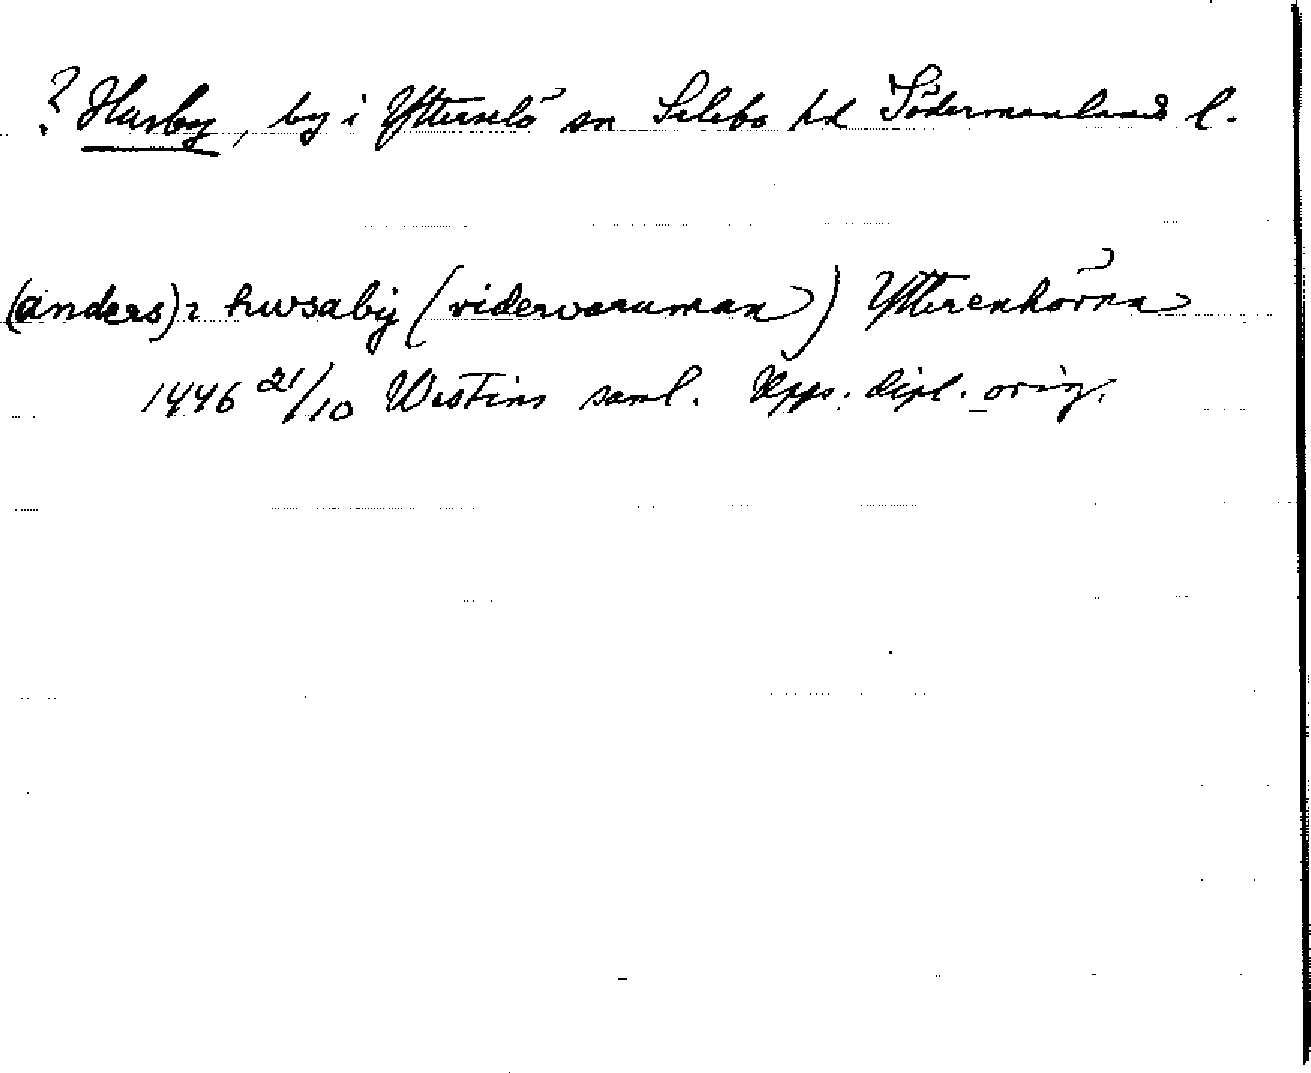 ? Husby, by i Ytterselö sn Selebo hd Södermanlands l.
(anders) i hwsaby (vidervaruman) Ytterenhörna
1446 21/10 Westins saml. Upps. dipl. orig.